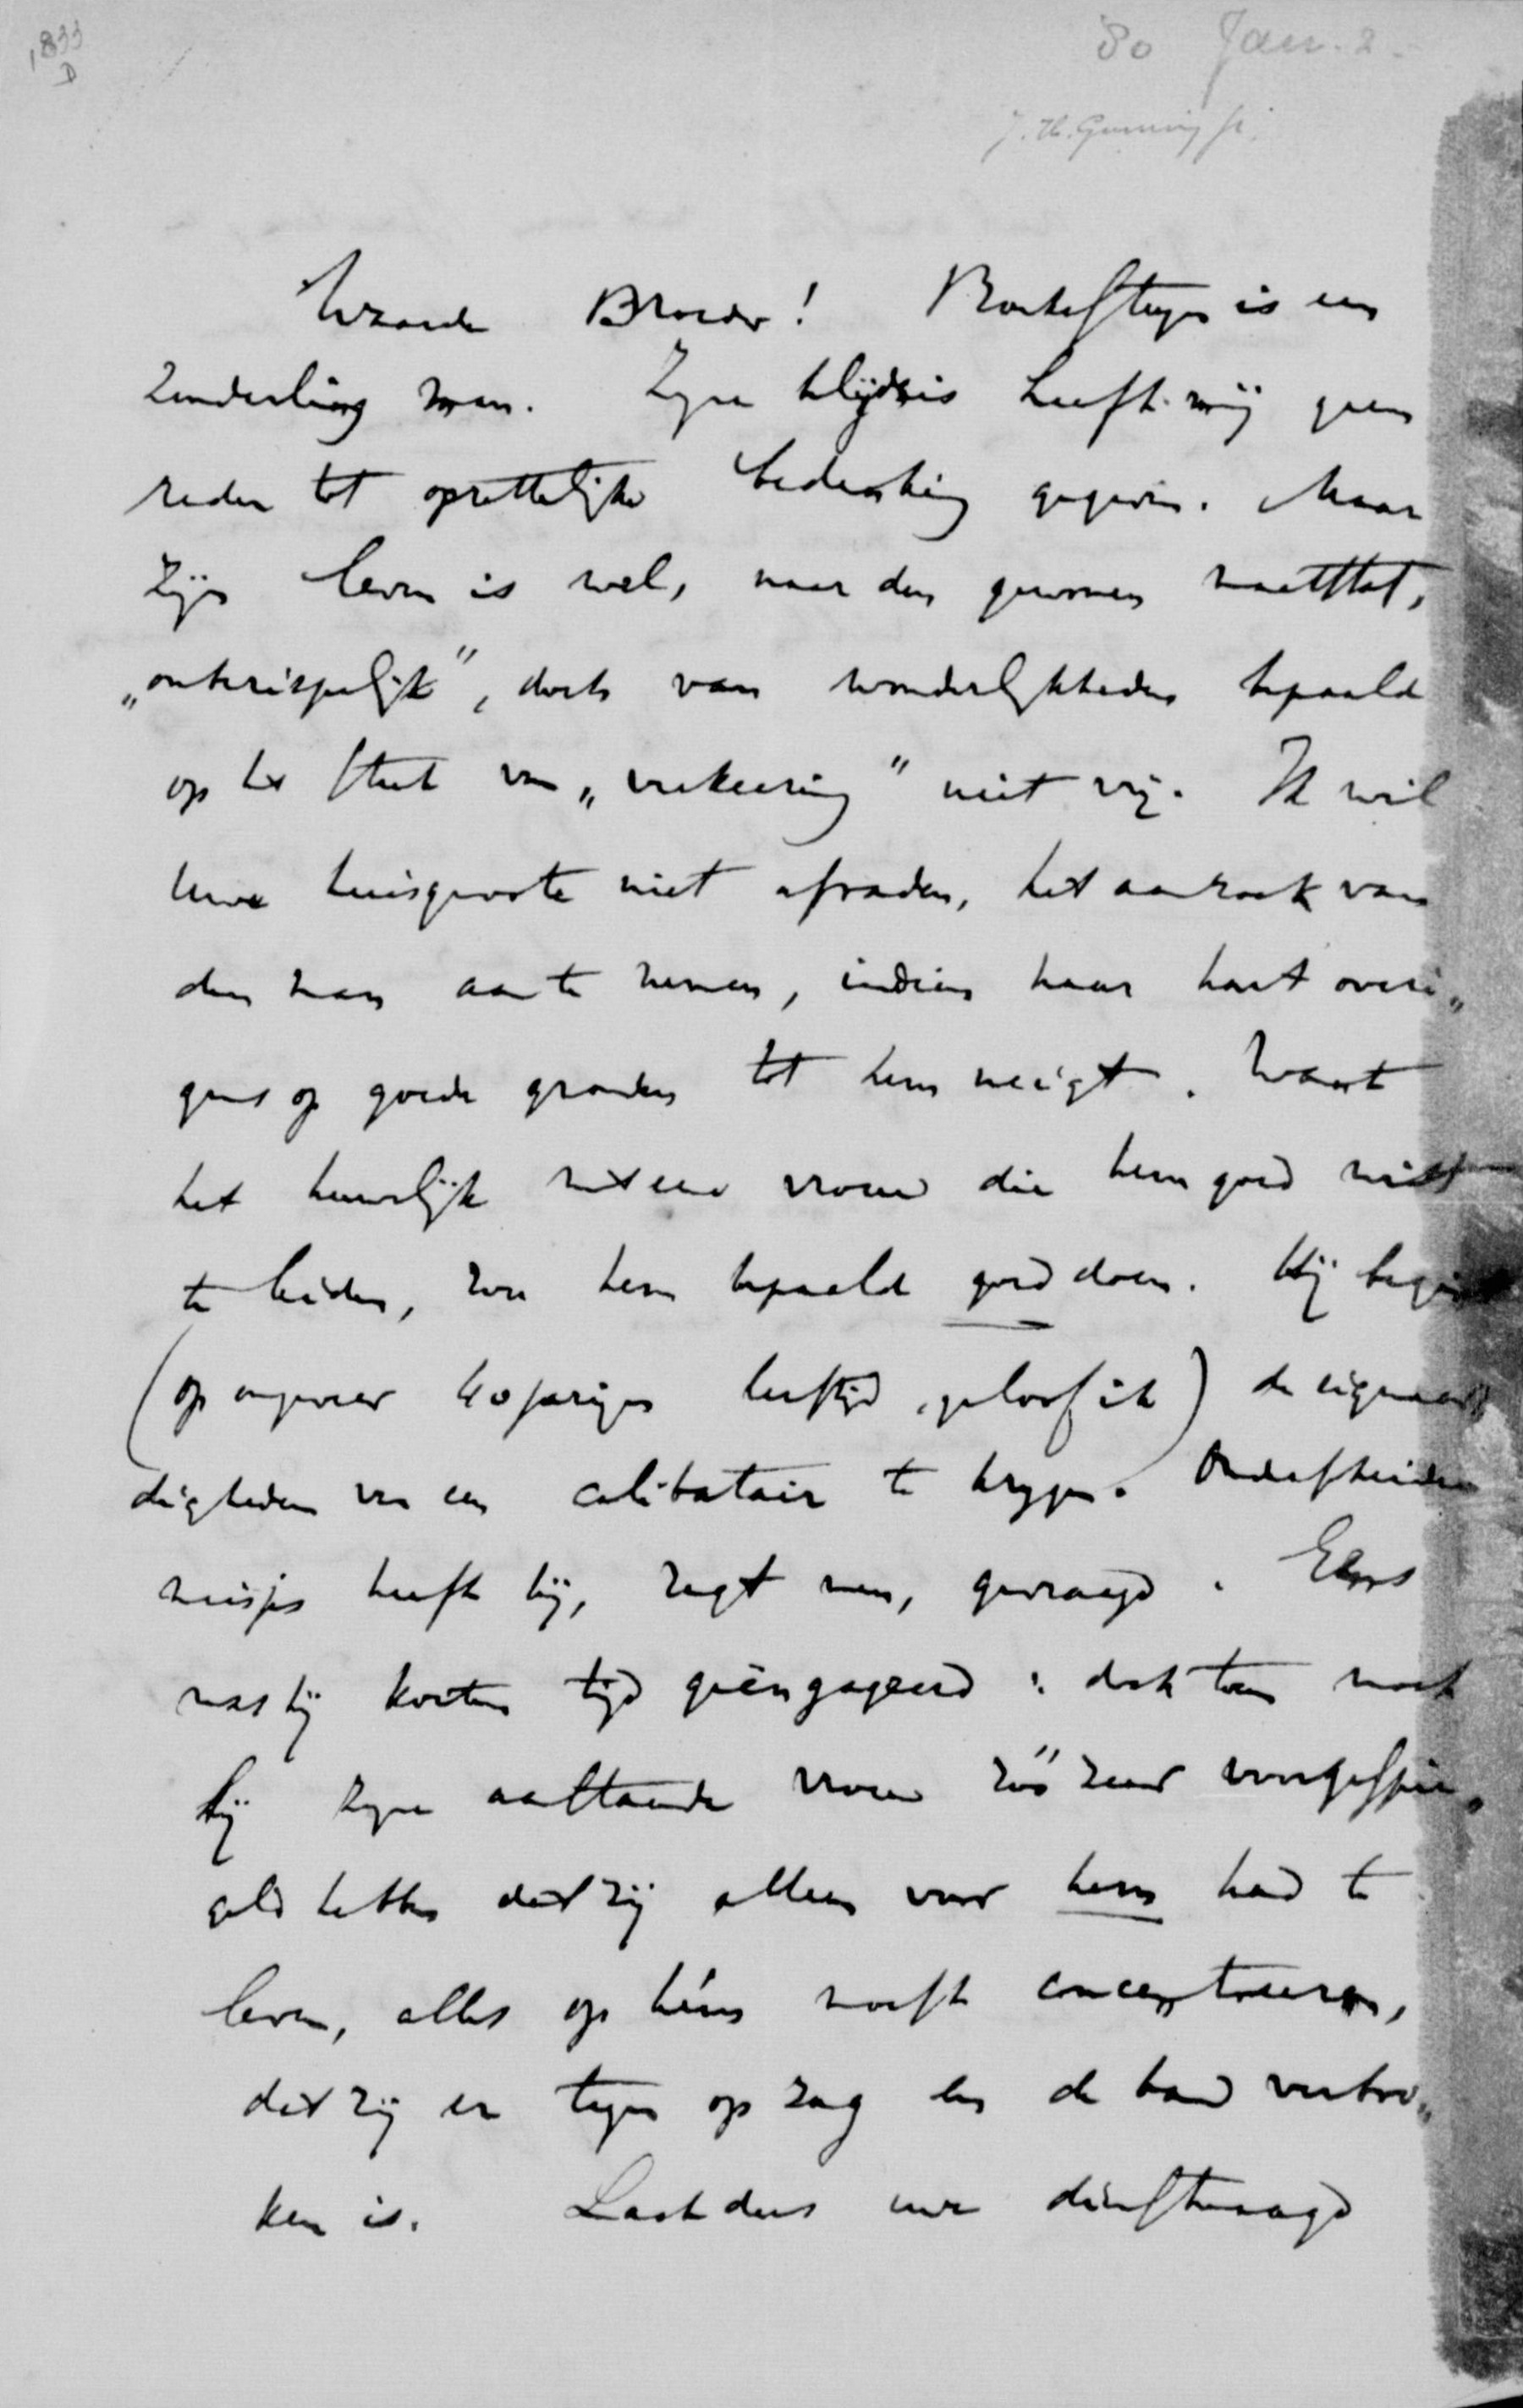 1833
D
80 Jan. 2.
J. H. Gunning Jr.
Waarde Broeder! is een
zonderling man. Zijne belijdenis heeft mij geen
reden tot opzettelijke bedenking gegeven. Maar
zijn leven is wel, naar den gewonen maatstaf,
„onberispelijk", doch van wonderlijkheden bepaald
op het stuk van „verkeering" niet vrij. Ik wil
uwe huisgenoote niet afraden, het aanzoek van
den man aan te nemen, indien haar hart overi„
gens op goede gronden tot hem neigt. Want
het huwelijk met eene vrouw die hem goed wist
te leiden, zou hem bepaald goed doen. Hij begint
(op ongeveer 40jarigen leeftijd, geloof ik) de eigenaar
digheden van een celibatair te krijgen. Onderscheidene
meisjes heeft hij, zegt men, gevraagd. Eens
was hij korten tijd geëngageerd: doch toen moet
hij zijne aanstaande vrouw zóó zeer voorgespie„
geld hebben dat zij alleen voor hem had te
leven, alles op hém moest concentreeren,
dat zij er tegen op zag en de band verbro„
ken is. Laat dus uwe dienstmaagd